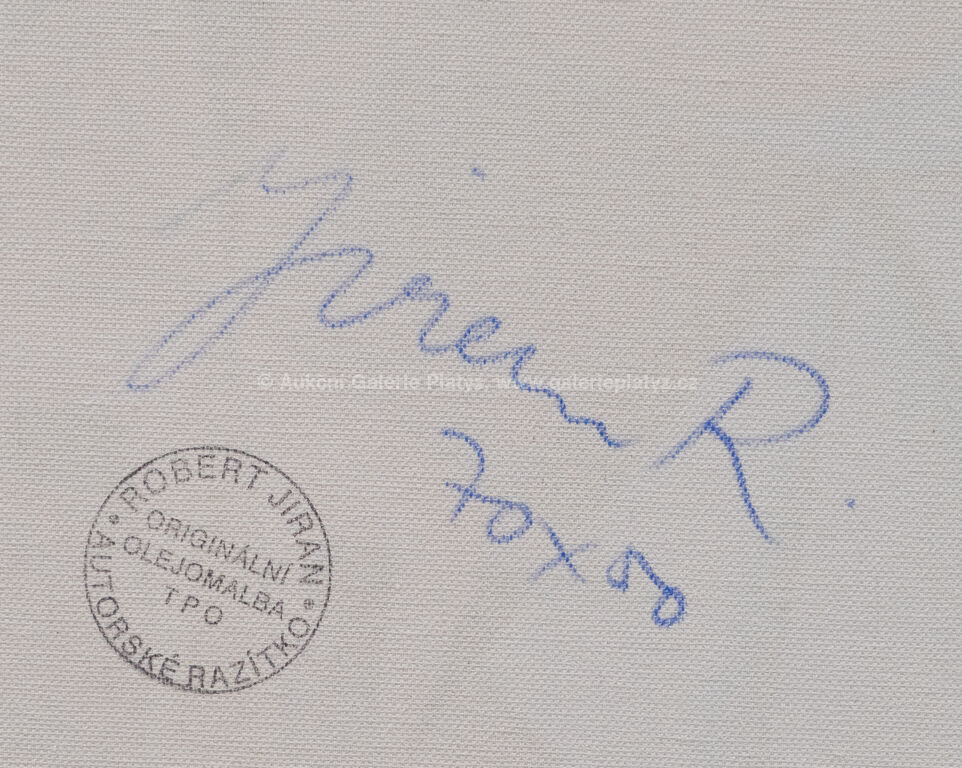 Jiran R.
70x80
© Aukční Galerie Platýz, www.galerieplatyz.cz
ROBERT JIRAN
ORIGINÁLNÍ
OLEJOMALBA
TPO
AUTORSKÉ RAZÍTKO